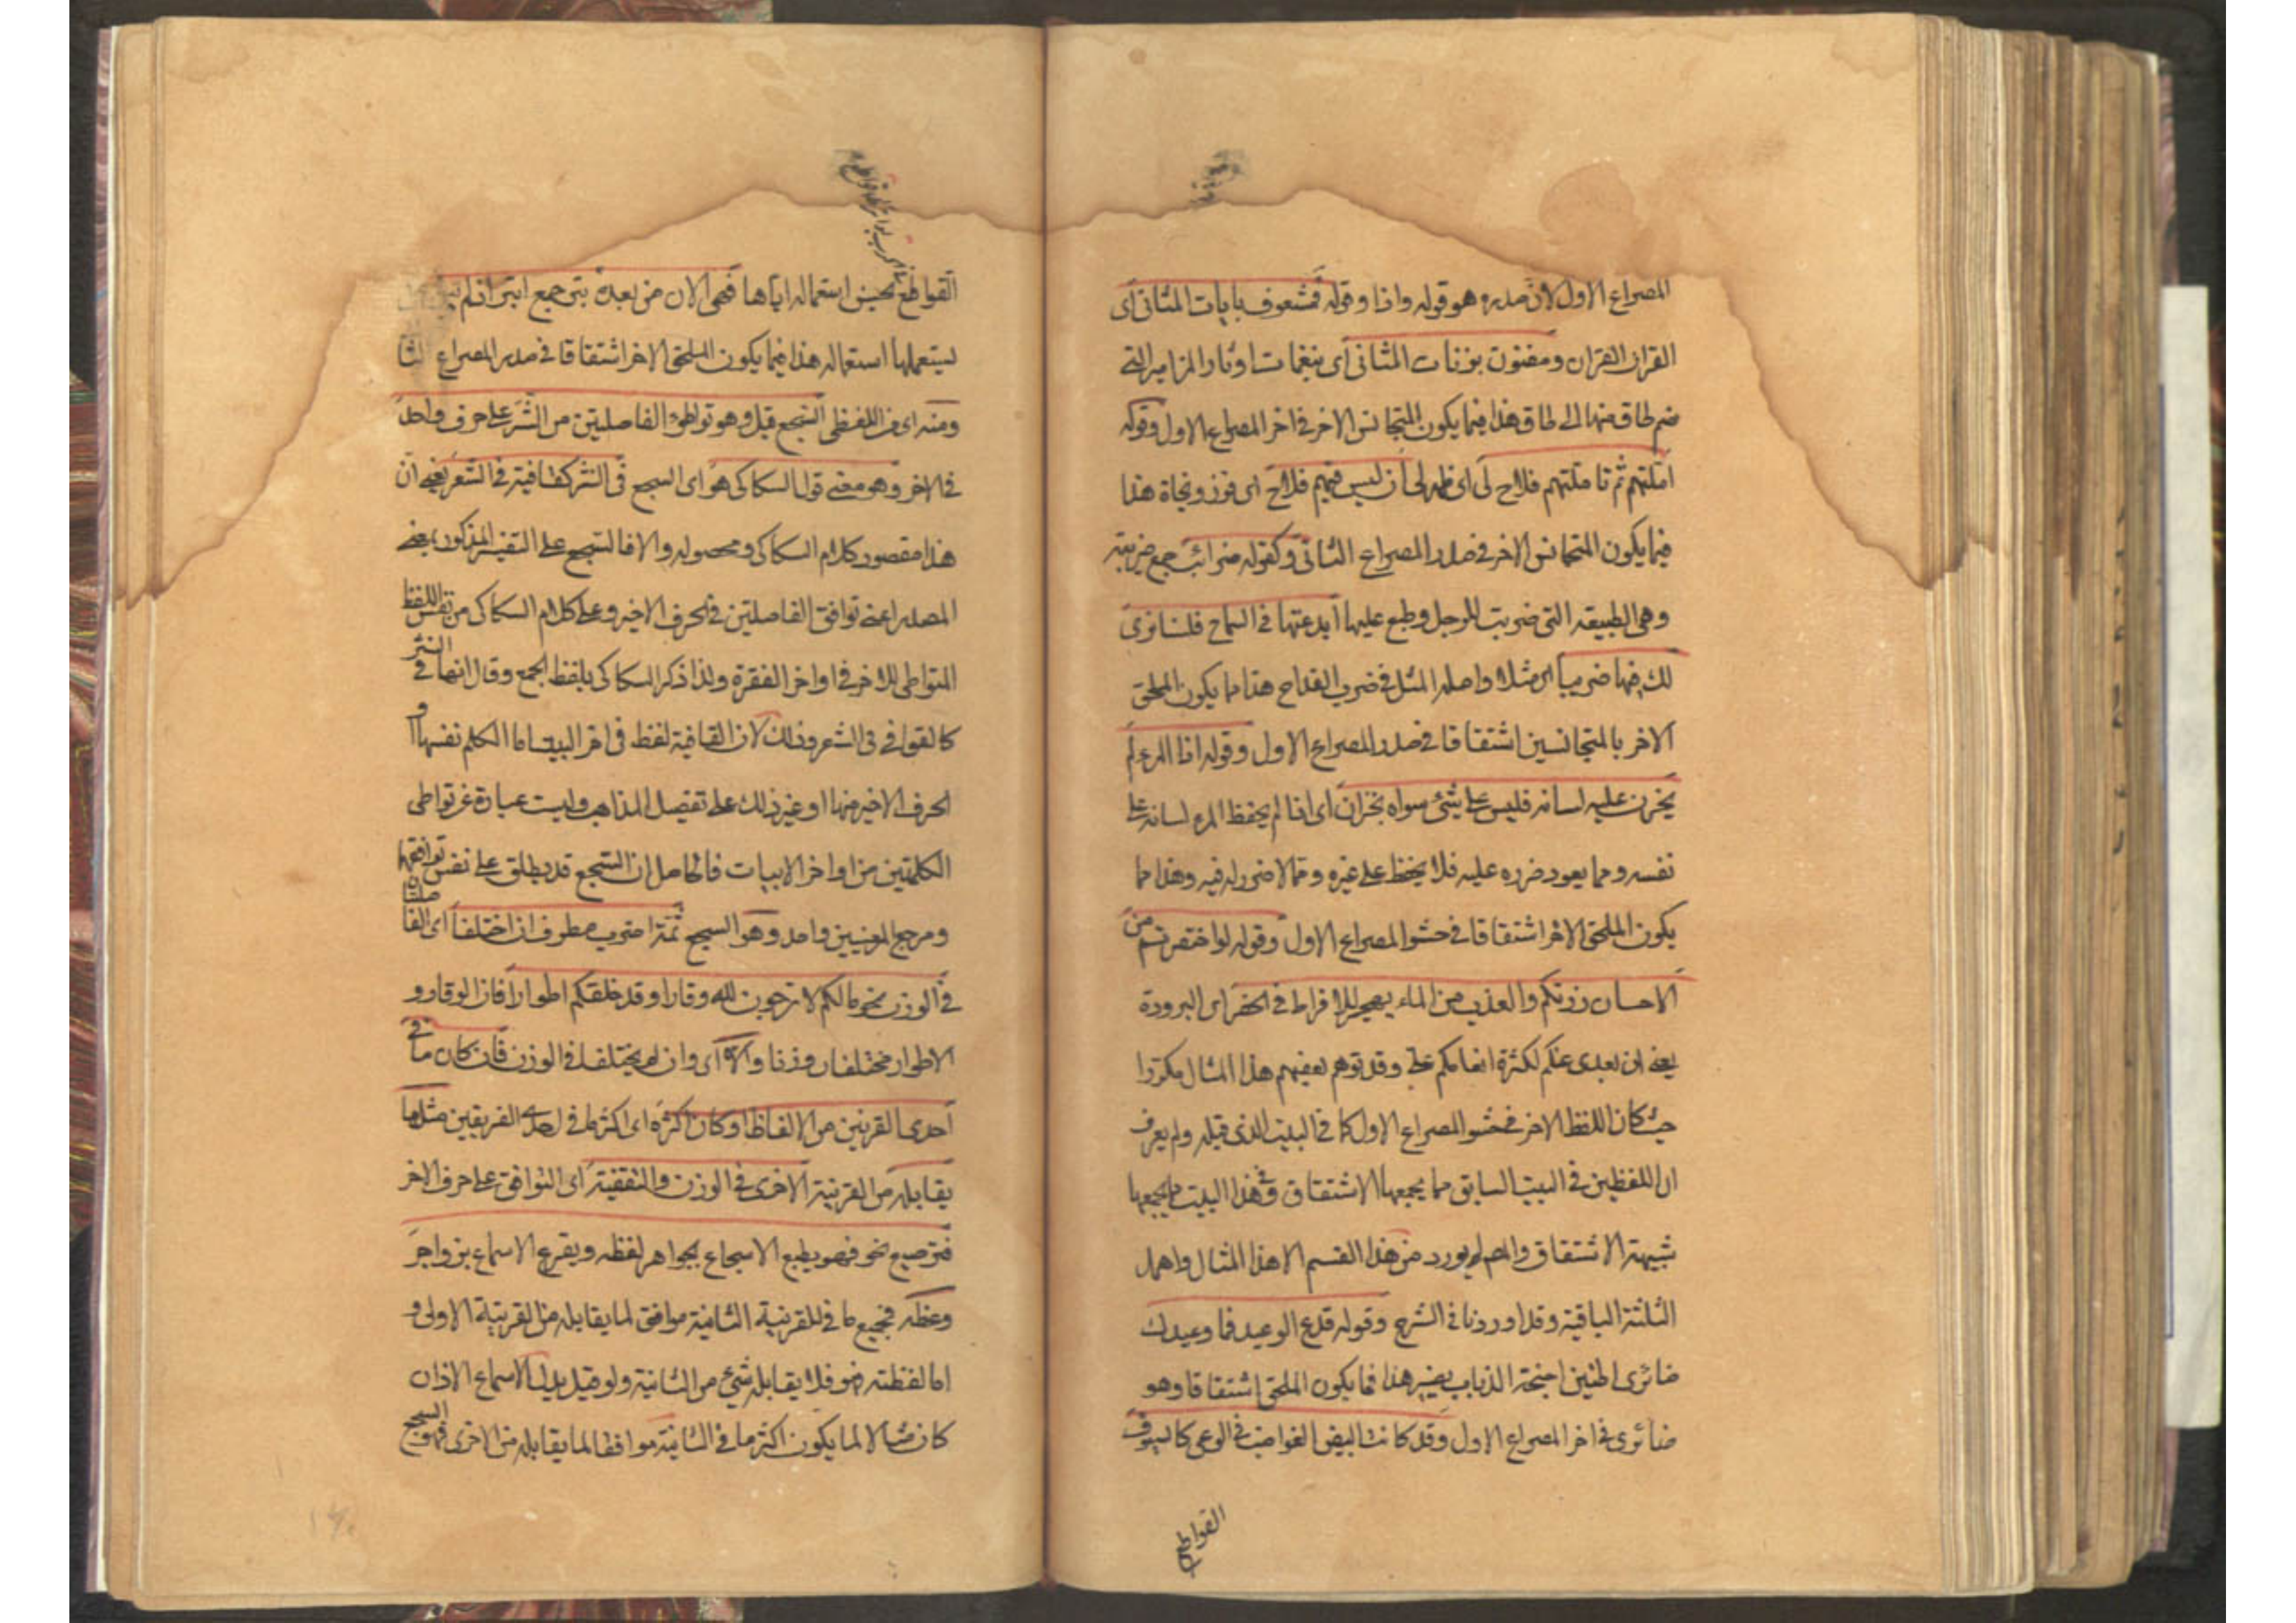 المصراع الاول لان صدره هو قوله واذا وقوله فمشعوف بايات المثانى اى
القران القران ومفتون برنات المثانى اى بنغمات اوتار المزامير التى
ضم طاق منها الى طاق هذا فيما يكون المتجانس الاخر فى اخر المصراع الاول وقوله
املتهم ثم تاملتهم فلاح لى اى ظهر لى ان ليس فيهم فلاح اى فوز ونجاة هذا
فيما يكون المتجانس الاخر فى صدر المصراع الثانى وكقوله ضرائب جمع ضريبة
وهى الطبيعة التى ضربت للرجل وطبع عليها ابدعتها فى السماح فلسنا نرى
لك فيها ضريبا اى مثلا واصله المثل فى ضرب القداح هذا مما يكون الملحق
الاخر بالمتجانسين اشتقاقا فى صدر المصراع الاول وقوله اذا المرء لم
يخزن عليه لسانه فليس على شئ سواه بخزان اى اذا لم يحفظ المرء لسانه على
نفسه ومما يعود ضرره عليه فلا يحفظ على غيره ومما لا ضرر له فيه وهذا مما
يكون الملحق الاخر اشتقاقا فى حشو المصراع الاول وقوله لو اختصرتم من
الاحسان زرتكم والعذب من الماء يهجر للافراط فى الخصر اى البرودة
يعنى ان بعدى عنكم لكثرة انعامكم على وقد توهم بعضهم هذا المثال مكررا
حيث كان اللفظ الاخر فى حشو المصراع الاول كما فى البيت الذى قبله ولم يعرف
ان اللفظين فى البيت السابق مما يجمعها الاشتقاق وفى هذا البيت مما يجمعها
شبهة الاشتقاق والمص لم يورد من هذا القسم الا هذا المثال واهمل
الثلثة الباقية وقد اوردنا فى الشرح وقوله فدع الوعيد فما وعيدك
ضائرى اطنين اجنحة الذباب يضير هذا فما يكون الملحق اشتقاقا وهو
ضائرى فى اخر المصراع الاول وقد كانت البيض القواضب فى الوغى كالسيوف
القواطع
القواطع بحسن استعماله اياها فهى الان من بعده بتر جمع ابتر اذ لم
يستعملها استعماله هذا فيما يكون الملحق الاخر اشتقاقا فى صدر المصراع الثا
ومنه اى من اللفظى السجع قيل وهو تواطؤ الفاصلتين من النثر على حرف واحد
فى الاخر وهو معنى قول السكاكى هو اى السجع فى النثر كقافية فى الشعر يعنى ان
هذا مقصود كلام السكاكى ومحصوله والا فالسجع على التفسير المذكور بمعنى
المصدر اعنى توافق الفاصلتين فى الحرف الاخير وعلى كلام السكاكى من نفس اللفظ
المتواطى للاخر فى اواخر الفقرة ولذا ذكر السكاكى بلفظ الجمع وقال انها فى النثر
كالقوافى فى الشعر وذلك لان القافية لفظ فى اخر البيت اما الكلم نفسها او
الحرف الاخير منها او غير ذلك على تفصيل المذاهب وليست عبارة عن تواطى
الكلمتين من اواخر الابيات فالحاصل ان السجع قد يطلق على نفس توافقهما
ومرجع المعنيين واحد وهو السجع ثلثة اضرب مطرف ان اختلفا اى الفاصلتان
فى الوزن نحو مالكم لا ترجون لله وقارا وقد خلقكم اطوارا فان الوقار و
الاطوار مختلفان وزنا والا اى وان لم يختلفا فى الوزن فان كان ما فى
احدى القرنين من الالفاظ او كان اكثره اى اكثر ما فى احدى القرينين مثل ما
يقابله من القرينة الاخرى فى الوزن والتقفية اى التوافق على حرف الاخر
فترصيع نحو فهو يطبع الاسجاع بجواهر لفظه ويقرع الاسماع بزواجر
وعظه فجميع ما فى القرينة الثانية موافق لما يقابله من القرينة الاولى و
اما لفظته هو فلا يقابله شئ من الثانية ولو قيل بدل الاسماع الاذان
كان مثالا لما يكون اكثر ما فى الثانية موافقا لما يقابله من الاخرى فهو السجع